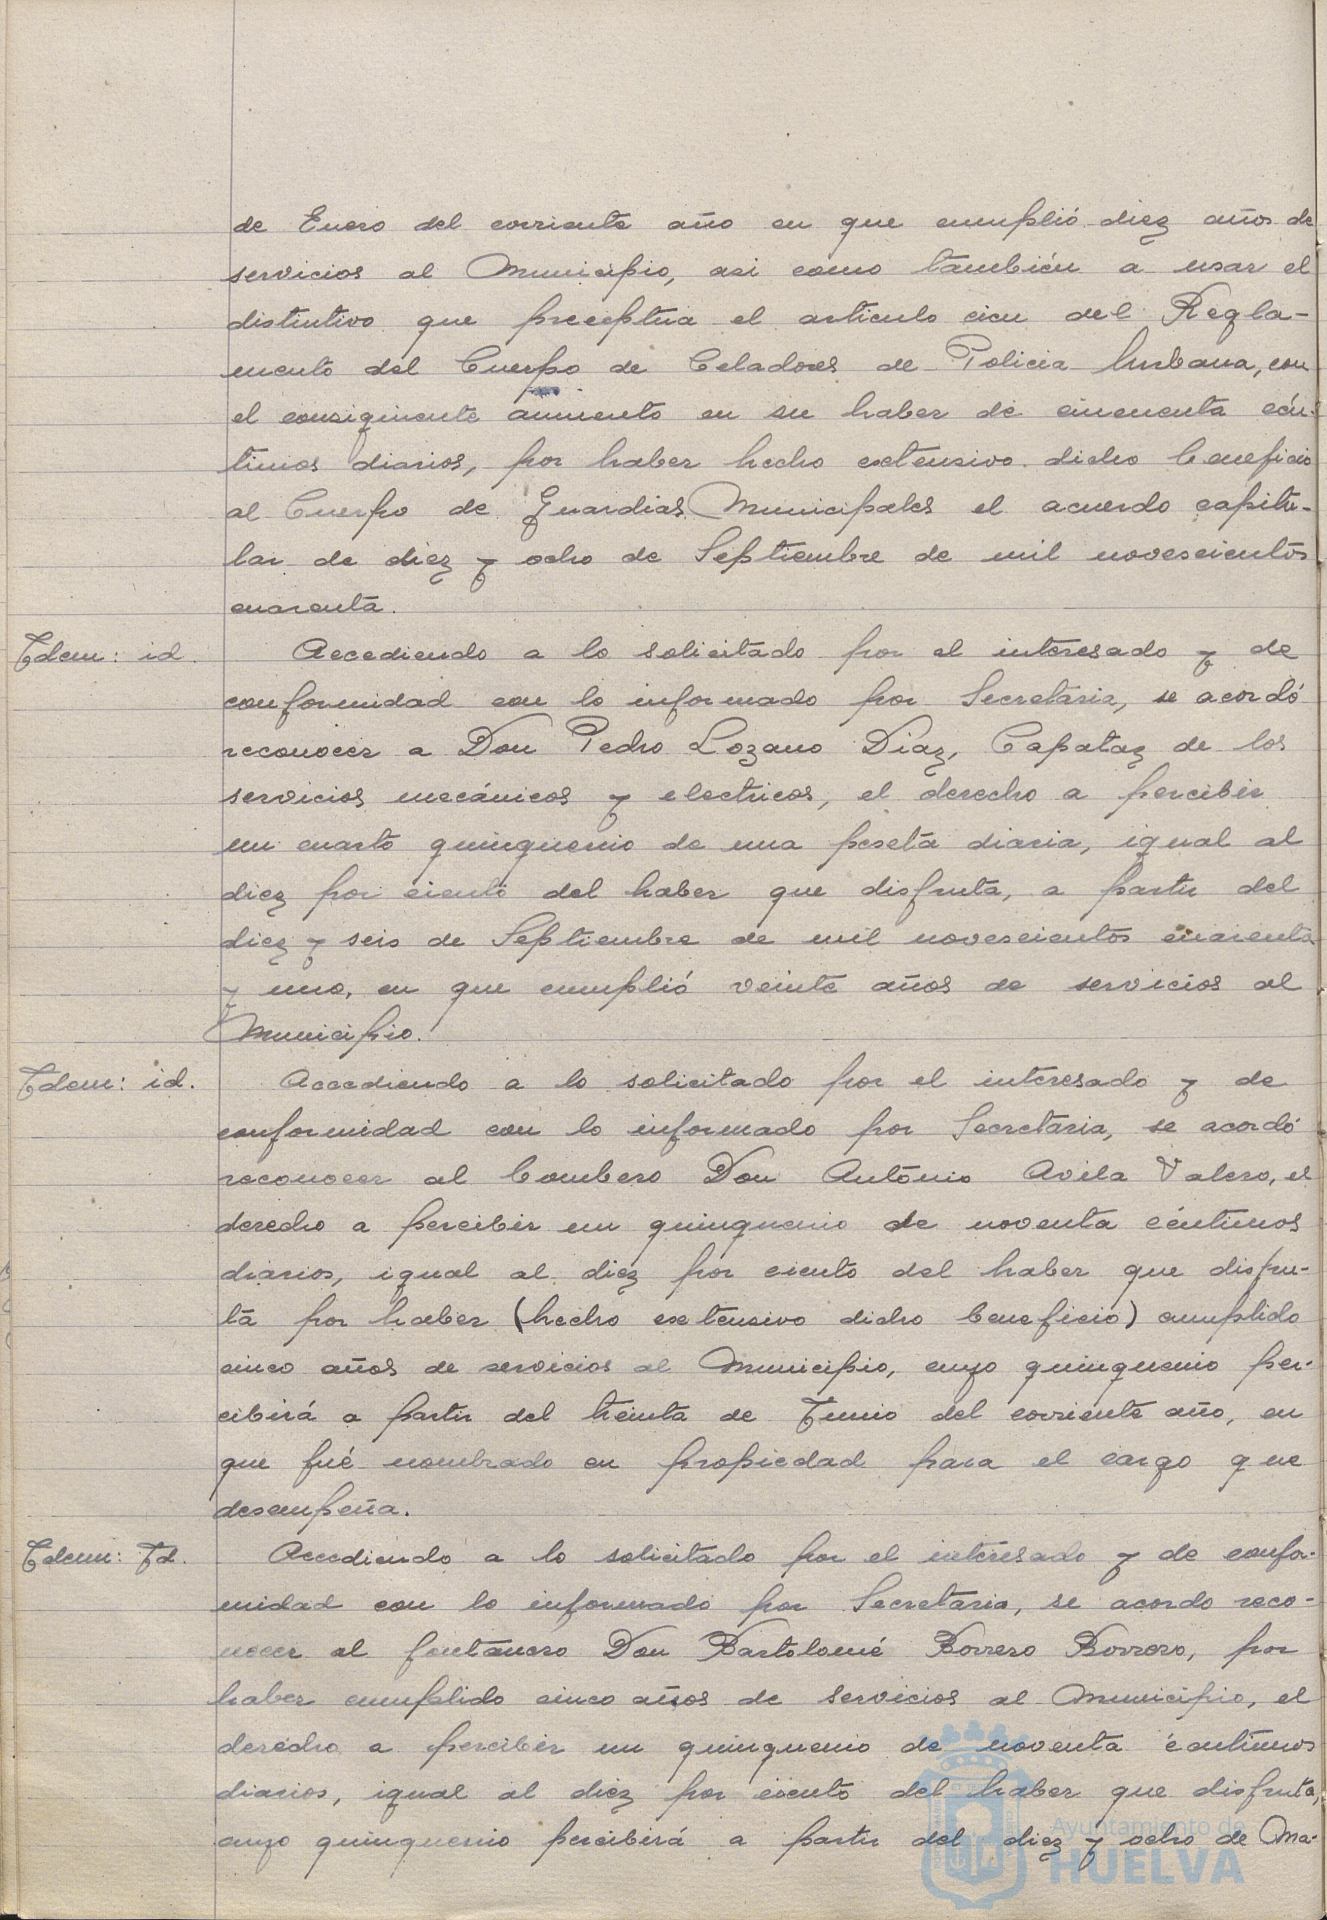 de Enero del corriente año en que cumplió diez años de
servicios al Municipio, asi como también a usar el
distintivo que preceptua el articulo cien del Regla-
mento del Cuerpo de Celadores de Policia Urbana, con
el consiguiente aumento en su haber de cincuenta cén-
timos diarios, por haber hecho extensivo dicho beneficio
al Cuerpo de Guardias Municipales el acuerdo capitu-
lar de diez y ocho de Septiembre de mil novescientos
cuarenta.
Idem: id. Accediendo a lo solicitado por el interesado y de
conformidad con lo informado por Secretaria, se acordó
reconocer a Don Pedro Lozano Díaz, Capataz de los
servicios mecánicos y electricos, el derecho a percibir
un cuarto quinquenio de una peseta diaria, igual al
diez por ciento del haber que disfruta, a partir del
diez y seis de Septiembre de mil novescientos cuarenta
y uno, en que cumplió veinte años de servicios al
Municipio.
Idem: id. Accediendo a lo solicitado por el interesado y de
conformidad con lo informado por Secretaria, se acordó
reconocer al bombero Don Antonio Avila Valero, el
derecho a percibir un quinquenio de noventa céntimos
diarios, igual al diez por ciento del haber que disfru-
ta por haber (hecho extensivo dicho beneficio) cumplido
cinco años de servicios al Municipio, cuyo quinquenio per-
cibirá a partir del treinta de Junio del corriente año, en
que fué nombrado en propiedad para el cargo que
desempeña.
Idem: Id. Accediendo a lo solicitado por el interesado y de confor-
midad con lo informado por Secretaria, se acordo reco-
nocer al fontanero Don Bartolomé Borrero Borrero, por
haber cumplido cinco años de servicios al Municipio, el
derecho a percibir un quinquenio de noventa céntimos
diarios, igual al diez por ciento del haber que disfruta,
cuyo quinquenio percibirá a partir del diez y ocho de Ma-
Ayuntamiento de
HUELVA